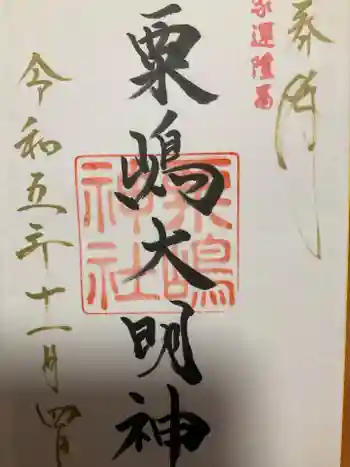 奉拝
家運隆昌
粟嶋大明神
粟嶋神社
令和五年十一月四日